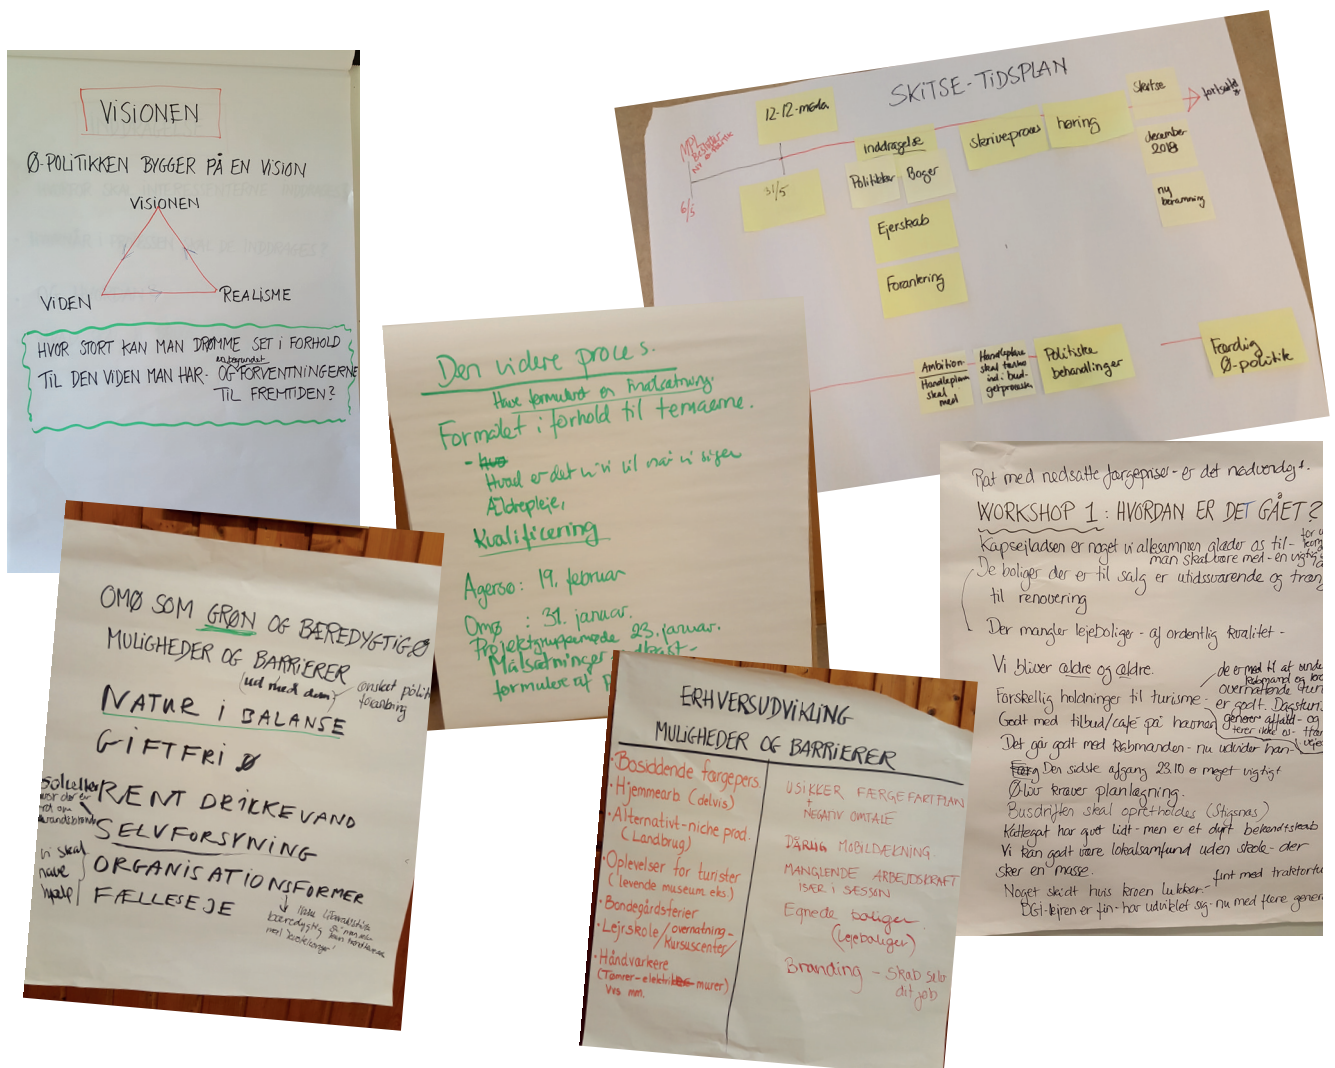 VISIONEN
Ø-POLITIKKEN BYGGER PÅ EN VISION
VISIONEN
VIDEN
REALISME
HVOR STORT KAN MAN DRØMME SET I FORHOLD
TIL DEN VIDEN MAN HAR - OG FORVENTNINGERNE
TIL FREMTIDEN?
SKITSE-TIDSPLAN
12-12-møde
31/5
6/3
inddragelse
Politikker
Borger
Ejerskab
Forankring
skriveproces
høring
Skitse
december
2018
ny
beramning
fortsat
Ambition-
Handleplan
skal
med
Handleplan
skal tænkes
ind i bud-
getproces
Politiske
behandlinger
Færdig
Ø-politik
Den videre proces.
Have formuleret en målsætning.
Formålet i forhold til temaerne.
Hvad er det vi vil når vi siger
Ældrepleje,
Kvalificering
Agersø: 19. februar
Omø : 31. januar.
Projektgruppemøde 23. januar.
Målsætninger
formuleret af
OMØ SOM GRØN OG BÆREDYGTIG Ø
MULIGHEDER OG BARRIERER
(ud med dem)
ønsket politi
forankring
NATUR I BALANSE
GIFTFRI Ø
RENT DRIKKEVAND
SELVFORSYNING
ORGANISATIONSFORMER
FÆLLESEJE
Solceller
vi skal
have
hjælp
bæredygtig
ERHVERSUDVIKLING
MULIGHEDER OG BARRIERER
• Bosiddende færgepers.
• Hjemmearb (delvis)
• Alternativt-niche prod.
(Landbrug)
• Oplevelser for turister
(levende museum eks.)
• Bondegårdsferier
• Lejrskole/overnatning-
kursuscenter/
• Håndværkere
(Tømrer-elektriker-murer)
Vvs mm.
USIKKER FÆRGEFARTPLAN
+
NEGATIV OMTALE
DÅRLIG MOBILDÆKNING.
MANGLENDE ARBEJDSKRAFT
ISÆR I SESSON
Egnede boliger
(lejeboliger)
Branding - skab selv
dit job
Fjat med nedsatte færgepriser - er det nødvendigt.
WORKSHOP 1: HVORDAN ER DET GÅET?
Kapsejladsen er noget vi allesammen glæder os til-
man skal være med - en vigtig
De boliger der er til salg er utidssvarende og træn
til renovering
Der mangler lejeboliger - af ordentlig kvalitet -
Vi bliver ældre og ældre.
de er med til at unde
Købmand og kro
Forskellig holdninger til turisme -
overnattende turi
er godt. Dagsturis
Godt med tilbud/café på havnen
generer affald - og
Det går godt med Købmanden - nu udvider han
Den sidste afgang 23.10 er meget vigtigt
Ø-liv kræver planlægning.
Busdriften skal opretholdes (Stigsnæs)
Kattegat har givet lidt - men er et dyrt bekendtskab
Vi kan godt være lokalsamfund uden skole - der
sker en masse.
Noget skidt hvis kroen lukker-
fint med traktortur
DGI-lejren er fin - har udviklet sig - nu med flere gener